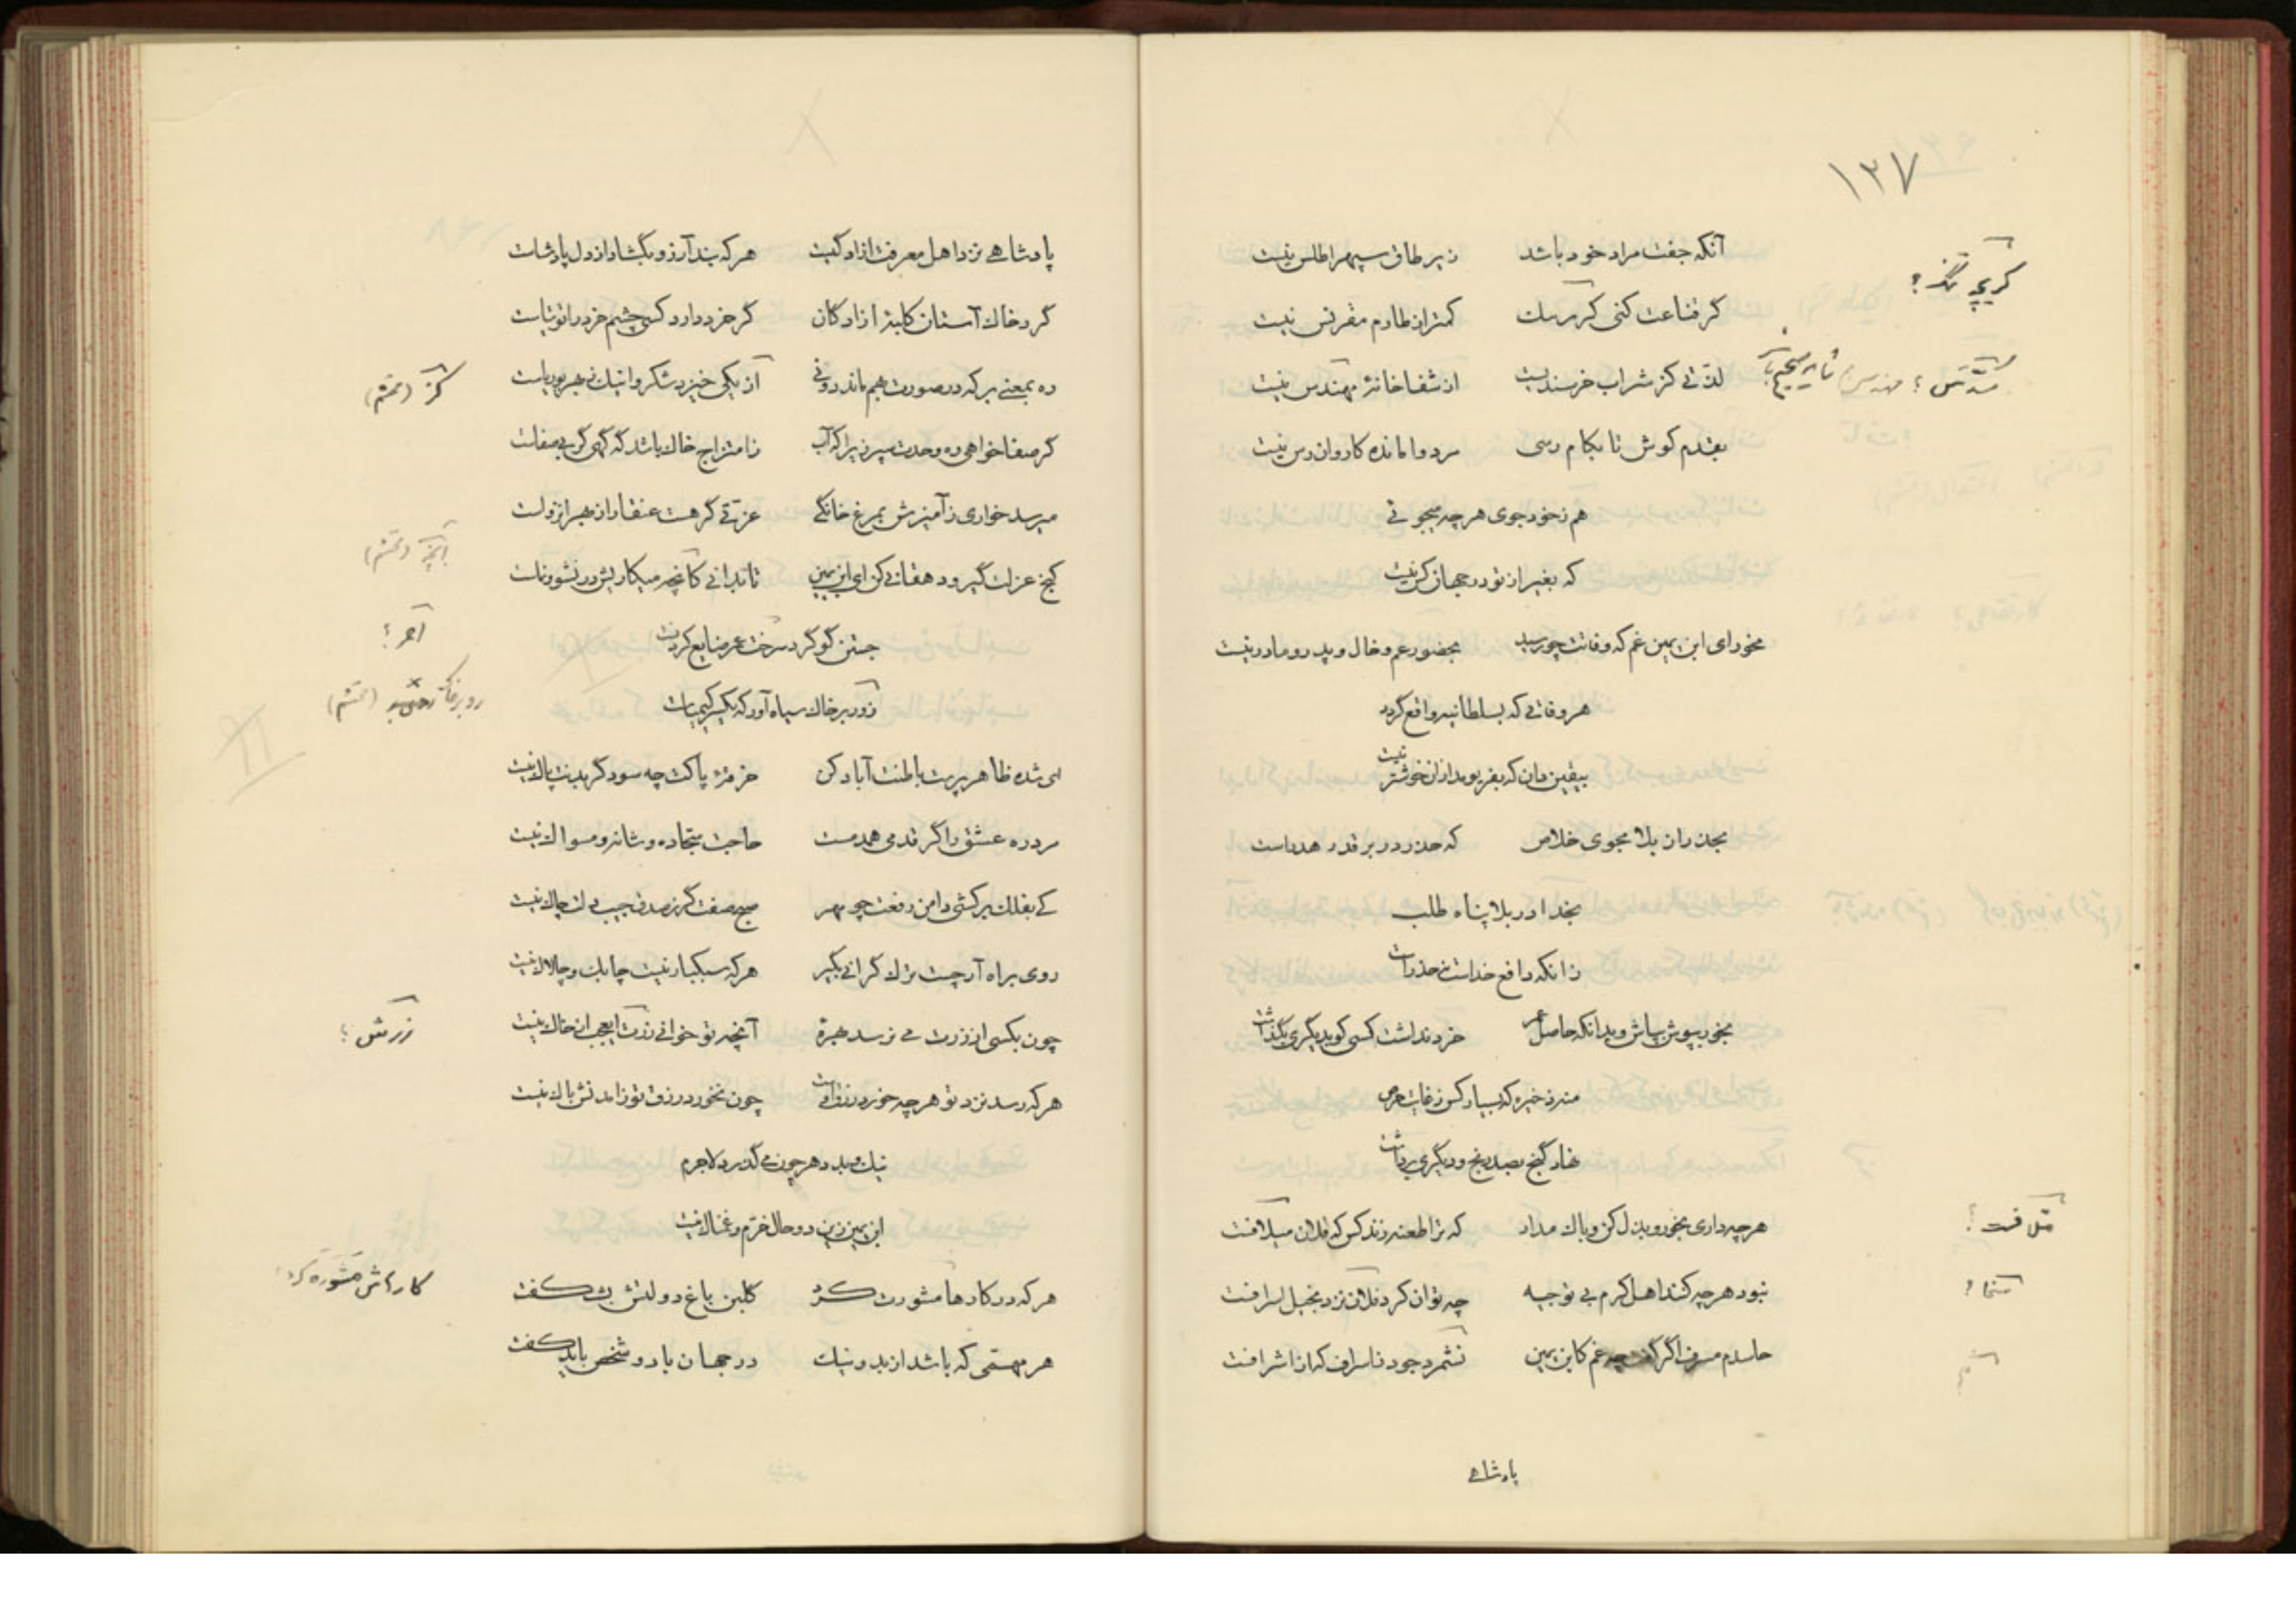 ۱۳۷
آنکه جفت مراد خود باشد زیر طاق سپهر اطلس نیست
گر قناعت کنی کریچک کمتر از طارم مقرنس نیست
لذتی کز شراب خرسندیست از شفاخانهٔ مهندس نیست
بقدم کوش تا بکام رسی مرد وامانده کاروان رس نیست
هم ز خود جوی هر چه میجوئی
که بغیر از تو در جهان کس نیست
مخور ای ابن یمین غم که وفاتت چو رسید بحضور عم و خال و پدر و مادر نیست
هر وفاتی که بسلطانیه واقع گردد
بیقین دان که بفریومد از آن خوشتر نیست
بحذر از بلا مجوی خلاص که حذر در بر قدر هدر است
بخدا در بلا پناه طلب
زانکه دافع خداست نه حذر است
بخور بپوش بپاش و بدانکه حاصل عمر خرد نداشت کسی کو بدیگری بگذاشت
منه ذخیره که بسیار کس ز غایت حرص
نهاد گنج بصد رنج و دیگری برداشت
هر چه داری بخور و بذل کن و باک مدار که ترا طعنه زند کس که فلان میلافت
نبود هر چه کنند اهل کرم بی توجیه چه توان کرد فلان نزد بخیل اسرافت
حاسدم مسرف اگر گفت چه غم کابن یمین نشمرد جود ز اسراف که از اشرافت
پادشاهی
کریچه تنگ ؟
متلافت ؟
پادشاهی نزد اهل معرفت آزادگیست هر که بند آرزو بگشاد از دل پادشاست
گرد خاک آستان کلبهٔ آزادگان گر خرد دارد کسی چشم خرد را توتیاست
ره بمعنی بر که در صورت بهم ماند دو نی آن یکی خیزد شکر و اینیک نی بهر بوریاست
گر صفا خواهی ره وحدت سپر زیرا که آب ز امتزاج خاک باشد که گهی گر بی صفاست
میرسد خواری ز آمیزش بمرغ خانگی عزتی گر هست عنقا را ز بهر انزواست
کنج عزلت گیر و دهقانی کن ای ابن یمین تا بدانی کانچه میکاریش در نشو و نماست
جستن گوگرد سرخت عمر ضایع کردنست
زور بر خاک سیاه آور که یکسر کیمیاست
ای شده ظاهر پرست باطنت آباد کن خرقهٔ پاکت چه سود گر بدنت پاک نیست
مرد ره عشق را گر قدمی همدمست حاجت سجاده و شانه و مسواک نیست
کی بفلک بر کشی دامن رفعت چو مهر صبح صفت گر ز صدق جیب دلت چاک نیست
روی براه آر چست ترک گرانی بگیر هر که سبکبار نیست چابک و چالاک نیست
چون بکسی از زرت می نرسد بهرهٔ آنچه تو خوانی زرت ایعجب از خاک نیست
هر که رسد نزد تو هر چه خورد رزق اوست چون نخورد رزق تو زامدنش باک نیست
نیک و بد دهر چون می گذرد لاجرم
ابن یمین زین دو حال خرم و غمناک نیست
هر که در کارها مشورت کرد گلبن باغ دولتش بشکفت
هر مهمی که باشد از بد و نیک در جهان با دو شخص باید گفت
آنچه (تحشم)
آخر ؟
زرکش ؟